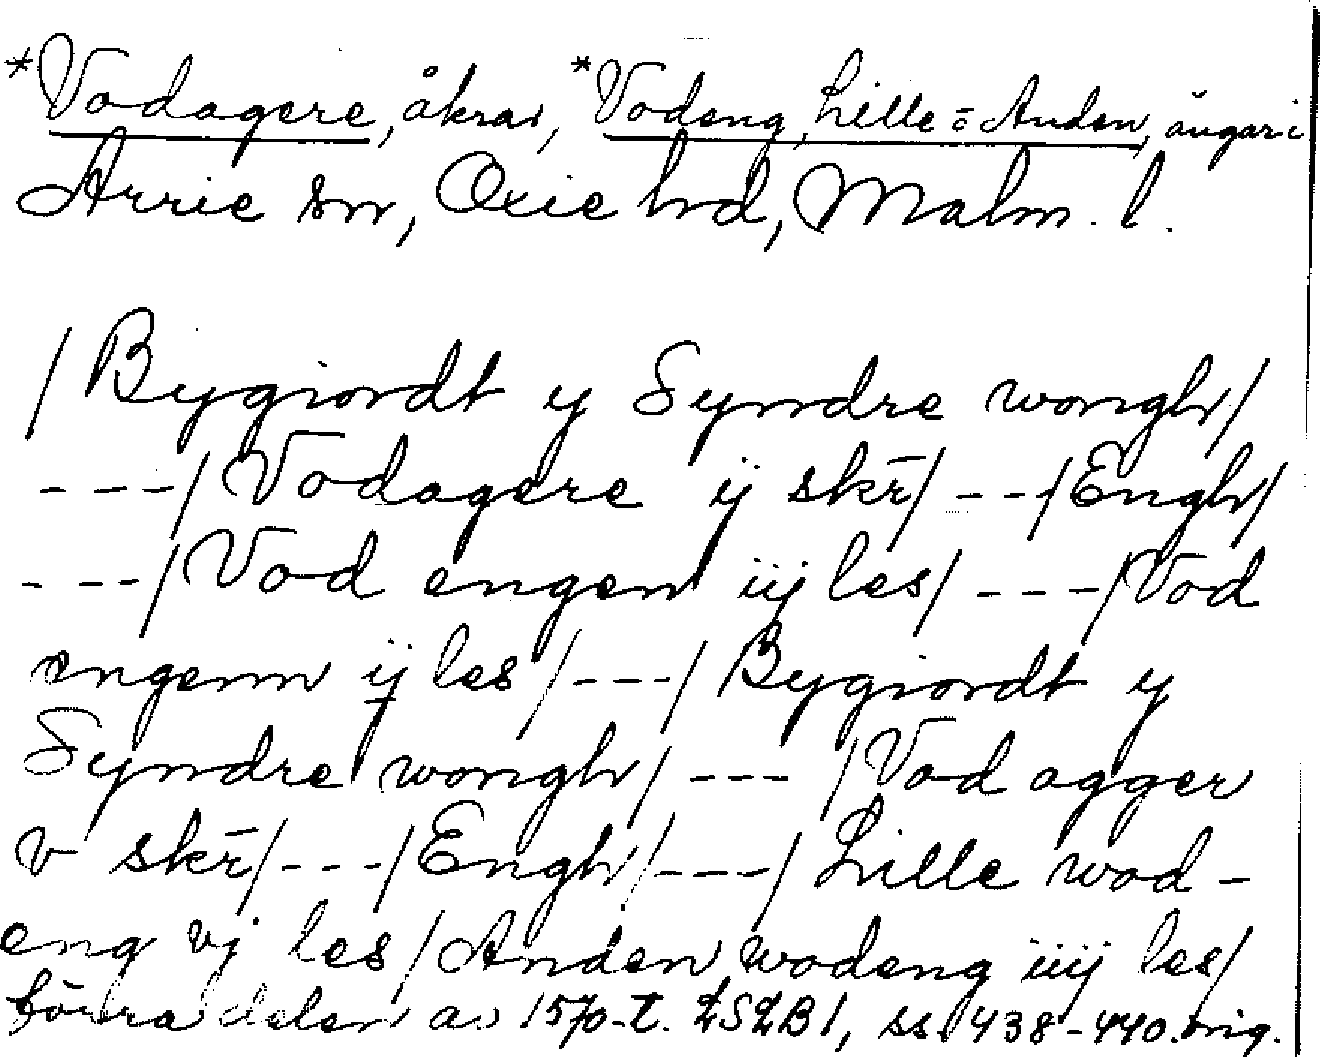 *Vodagere, åkrar, *Vodeng, Lille = Anden, ängar i
Arrie sn, Oxie hd, Malm. l.
/ Bygiordt y Syndre wongh/
---/ Vodagere ij skr̄/ ---/ Engh/
---/ Vod engen iij les/ ---/ Vod
engenn ij les /---/ Bygiordt y
Syndre wongh/ --- / Vod agger
v skr̄/---/ Engh/---/ Lille wod-
eng vj les / Anden wodeng iiij les/
förra delen av 1570-t. LSLB 1, ss. 438-440. orig.